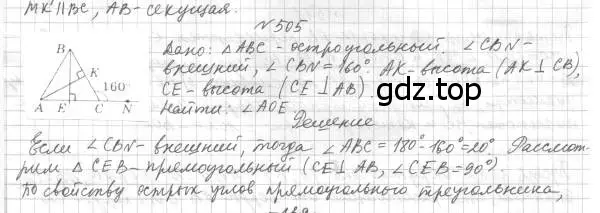 МК || ВС, АВ - секущая.
N 505
Дано: △ABC - остроугольный, ∠CBN -
внешний, ∠CBN = 160°. AK - высота (AK ⊥ CB),
CE - высота (CE ⊥ AB)
Найти: ∠AOE
B
K
160°
A E C N
gdz.top
Решение
Если ∠CBN - внешний, тогда ∠ABC = 180° - 160° = 20°. Рассмот-
рим △CEB - прямоугольный (CE ⊥ AB, ∠CEB = 90°).
По свойству острых углов прямоугольного треугольника,